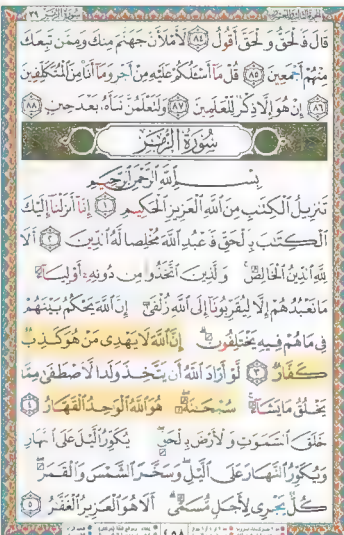 سورة الزمر ٣٩
قَالَ فَالْحَقُّ وَالْحَقَّ أَقُولُ ٨٤ لَأَمْلَأَنَّ جَهَنَّمَ مِنكَ وَمِمَّن تَبِعَكَ
مِنْهُمْ أَجْمَعِينَ ٨٥ قُلْ مَا أَسْئَلُكُمْ عَلَيْهِ مِنْ أَجْرٍ وَمَا أَنَا مِنَ الْمُتَكَلِّفِينَ
٨٦ إِنْ هُوَ إِلَّا ذِكْرٌ لِّلْعَالَمِينَ ٨٧ وَلَتَعْلَمُنَّ نَبَأَهُ بَعْدَ حِينٍ ٨٨
سُورَةُ الزُّمَرِ
بِسْمِ اللَّهِ الرَّحْمَنِ الرَّحِيمِ
تَنزِيلُ الْكِتَبِ مِنَ اللَّهِ الْعَزِيزِ الْحَكِيمِ ١ إِنَّا أَنزَلْنَا إِلَيْكَ
الْكِتَبَ بِالْحَقِّ فَاعْبُدِ اللَّهَ مُخْلِصًا لَّهُ الدِّينَ ٢ أَلَا
لِلَّهِ الدِّينُ الْخَالِصُ وَالَّذِينَ اتَّخَذُوا مِن دُونِهِ أَوْلِيَاءَ
مَا نَعْبُدُهُمْ إِلَّا لِيُقَرِّبُونَا إِلَى اللَّهِ زُلْفَى إِنَّ اللَّهَ يَحْكُمُ بَيْنَهُمْ
فِي مَا هُمْ فِيهِ يَخْتَلِفُونَ إِنَّ اللَّهَ لَا يَهْدِي مَنْ هُوَ كَذِبٌ
كَفَّارٌ ٣ لَّوْ أَرَادَ اللَّهُ أَن يَتَّخِذَ وَلَدًا لَّاصْطَفَى مِمَّا
يَخْلُقُ مَا يَشَاءُ سُبْحَنَهُ هُوَ اللَّهُ الْوَحِدُ الْقَهَّارُ ٤
خَلَقَ السَّمَوَتِ وَالْأَرْضَ بِالْحَقِّ يُكَوِّرُ الَّيْلَ عَلَى النَّهَارِ
وَيُكَوِّرُ النَّهَارَ عَلَى الَّيْلِ وَسَخَّرَ الشَّمْسَ وَالْقَمَرَ
كُلٌّ يَجْرِي لِأَجَلٍ مُّسَمًّى أَلَا هُوَ الْعَزِيزُ الْغَفَّرُ ٥
٤٥٨